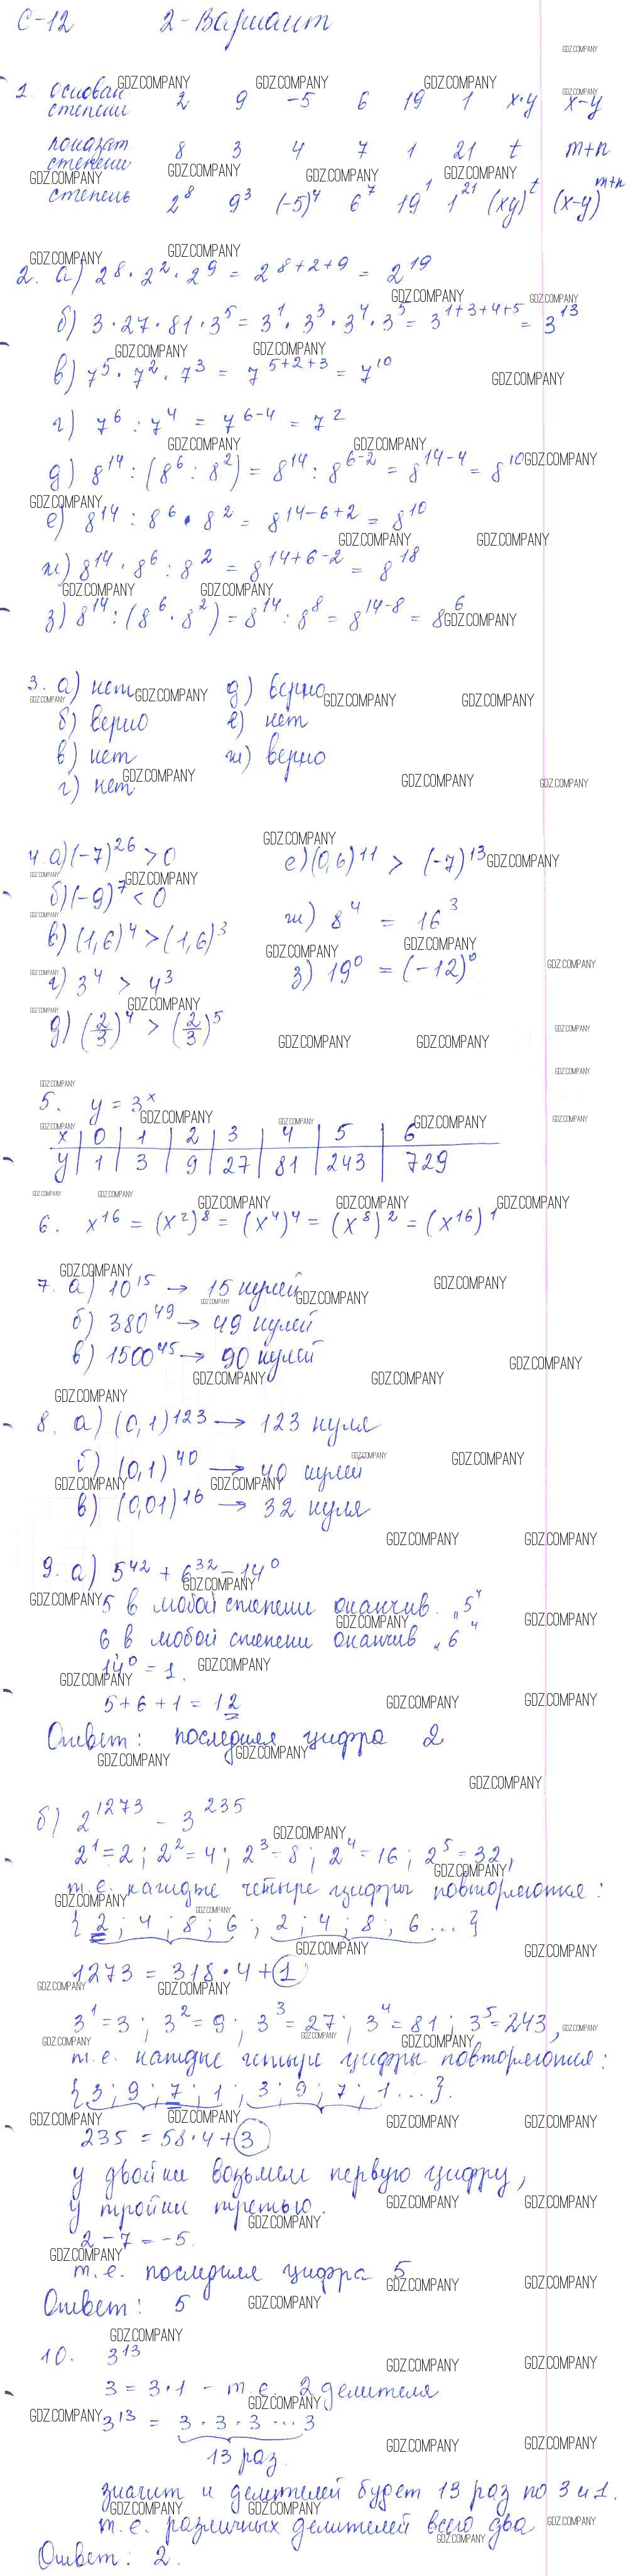 С-12 2-Вариант
1. основан степени 2 9 -5 6 19 1 x·y x-y
показат степени 8 3 4 7 1 21 t m+n
степень 2^8 9^3 (-5)^4 6^7 19^1 1^21 (xy)^t (x-y)^m+n
2. а) 2^8 · 2^2 · 2^9 = 2^8+2+9 = 2^19
б) 3 · 27 · 81 · 3^5 = 3^1 · 3^3 · 3^4 · 3^5 = 3^1+3+4+5 = 3^13
в) 7^5 · 7^2 · 7^3 = 7^5+2+3 = 7^10
г) 7^6 : 7^4 = 7^6-4 = 7^2
д) 8^14 : (8^6 : 8^2) = 8^14 : 8^6-2 = 8^14-4 = 8^10
е) 8^14 : 8^6 · 8^2 = 8^14-6+2 = 8^10
ж) 8^14 · 8^6 : 8^2 = 8^14+6-2 = 8^18
з) 8^14 : (8^6 · 8^2) = 8^14 : 8^8 = 8^14-8 = 8^6
3. а) нет д) верно
б) верно е) нет
в) нет ж) верно
г) нет
4. а) (-7)^26 > 0 е) (0,6)^11 > (-7)^13
б) (-9)^7 < 0
в) (1,6)^4 > (1,6)^3 ж) 8^4 = 16^3
г) 3^4 > 4^3 з) 19^0 = (-12)^0
д) (2/3)^4 > (2/3)^5
5. y = 3^x
x 0 1 2 3 4 5 6
y 1 3 9 27 81 243 729
6. x^16 = (x^2)^8 = (x^4)^4 = (x^8)^2 = (x^16)^1
7. а) 10^15 → 15 нулей
б) 380^49 → 49 нулей
в) 1500^45 → 90 нулей
8. а) (0,1)^123 → 123 нуля
б) (0,1)^40 → 40 нулей
в) (0,01)^16 → 32 нуля
9. а) 5^42 + 6^32 - 14^0
5 в любой степени оканчив. "5"
6 в любой степени оканчив "6"
14^0 = 1.
5+6+1 = 12
Ответ: последняя цифра 2
б) 2^1273 - 3^235
2^1=2; 2^2=4; 2^3=8; 2^4=16; 2^5=32,
т.е. каждые четыре цифры повторяются:
{2; 4; 8; 6; 2; 4; 8; 6...}
1273 = 318·4+1
3^1=3; 3^2=9; 3^3=27; 3^4=81; 3^5=243,
т.е. каждые четыре цифры повторяются:
{3; 9; 7; 1; 3; 9; 7; 1...}.
235 = 58·4+3
у двойки возьмем первую цифру,
у тройки третью.
2-7=-5.
т.е. последняя цифра 5
Ответ: 5
10. 3^13
3 = 3·1 - т.е. 2 делителя
3^13 = 3 · 3 · 3 ··· 3
13 раз
значит и делителей будет 13 раз по 3 и 1.
т.е. различных делителей всего два
Ответ: 2.
GDZ.COMPANY